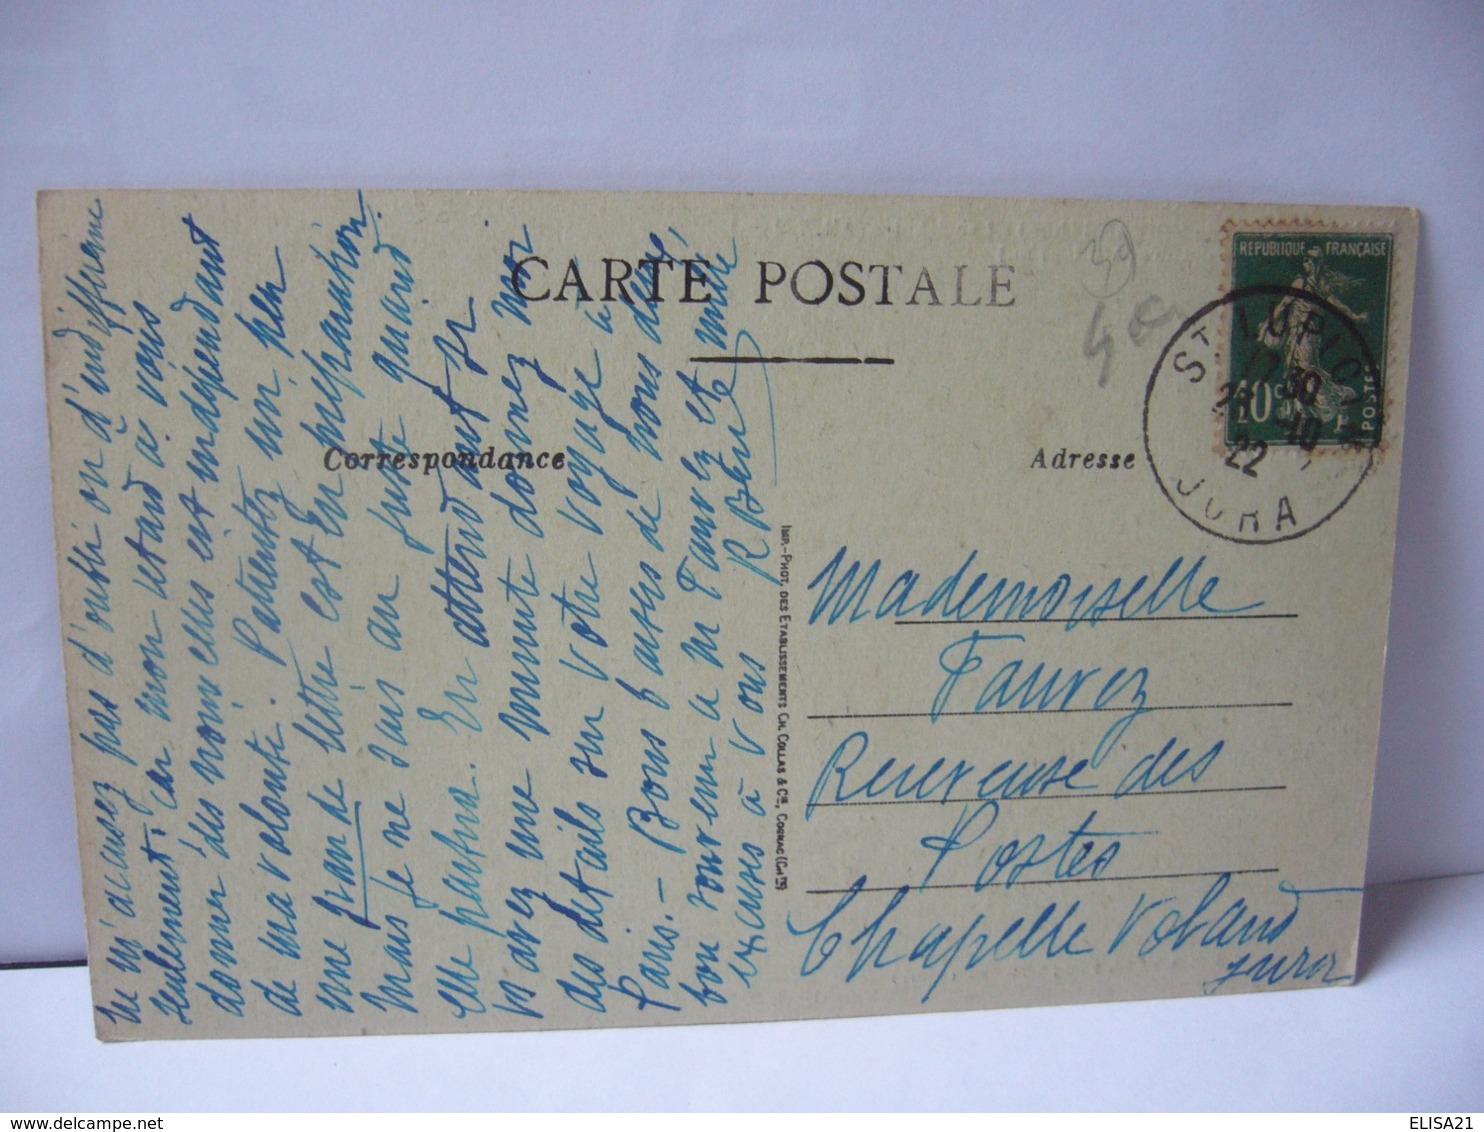 CARTE POSTALE
Correspondance
Adresse
REPUBLIQUE FRANÇAISE
10c
POSTES
ST LUPICIN
17 30
28 -10
22
JURA
39
Ne m'accusez pas d'oubli ou d'indifférence
seulement, car mon retard à vous
donner des nouvelles est indépendant
de ma volonté. Patientez un peu
une grande lettre est en préparation
mais je ne sais au juste quand
elle partira. En attendant si
vs avez une minute donnez moi
des détails sur votre voyage à
Paris. - Bons baisers de nous deux,
bon souvenir à M Faurez et mille
excuses à vous
IMP.-PHOT. DES ETABLISSEMENTS CH. COLLAS & Cie, COGNAC (Chte)
Mademoiselle
Faurez
Receveuse des
Postes
Chapelle Voland
Jura
ELISA21